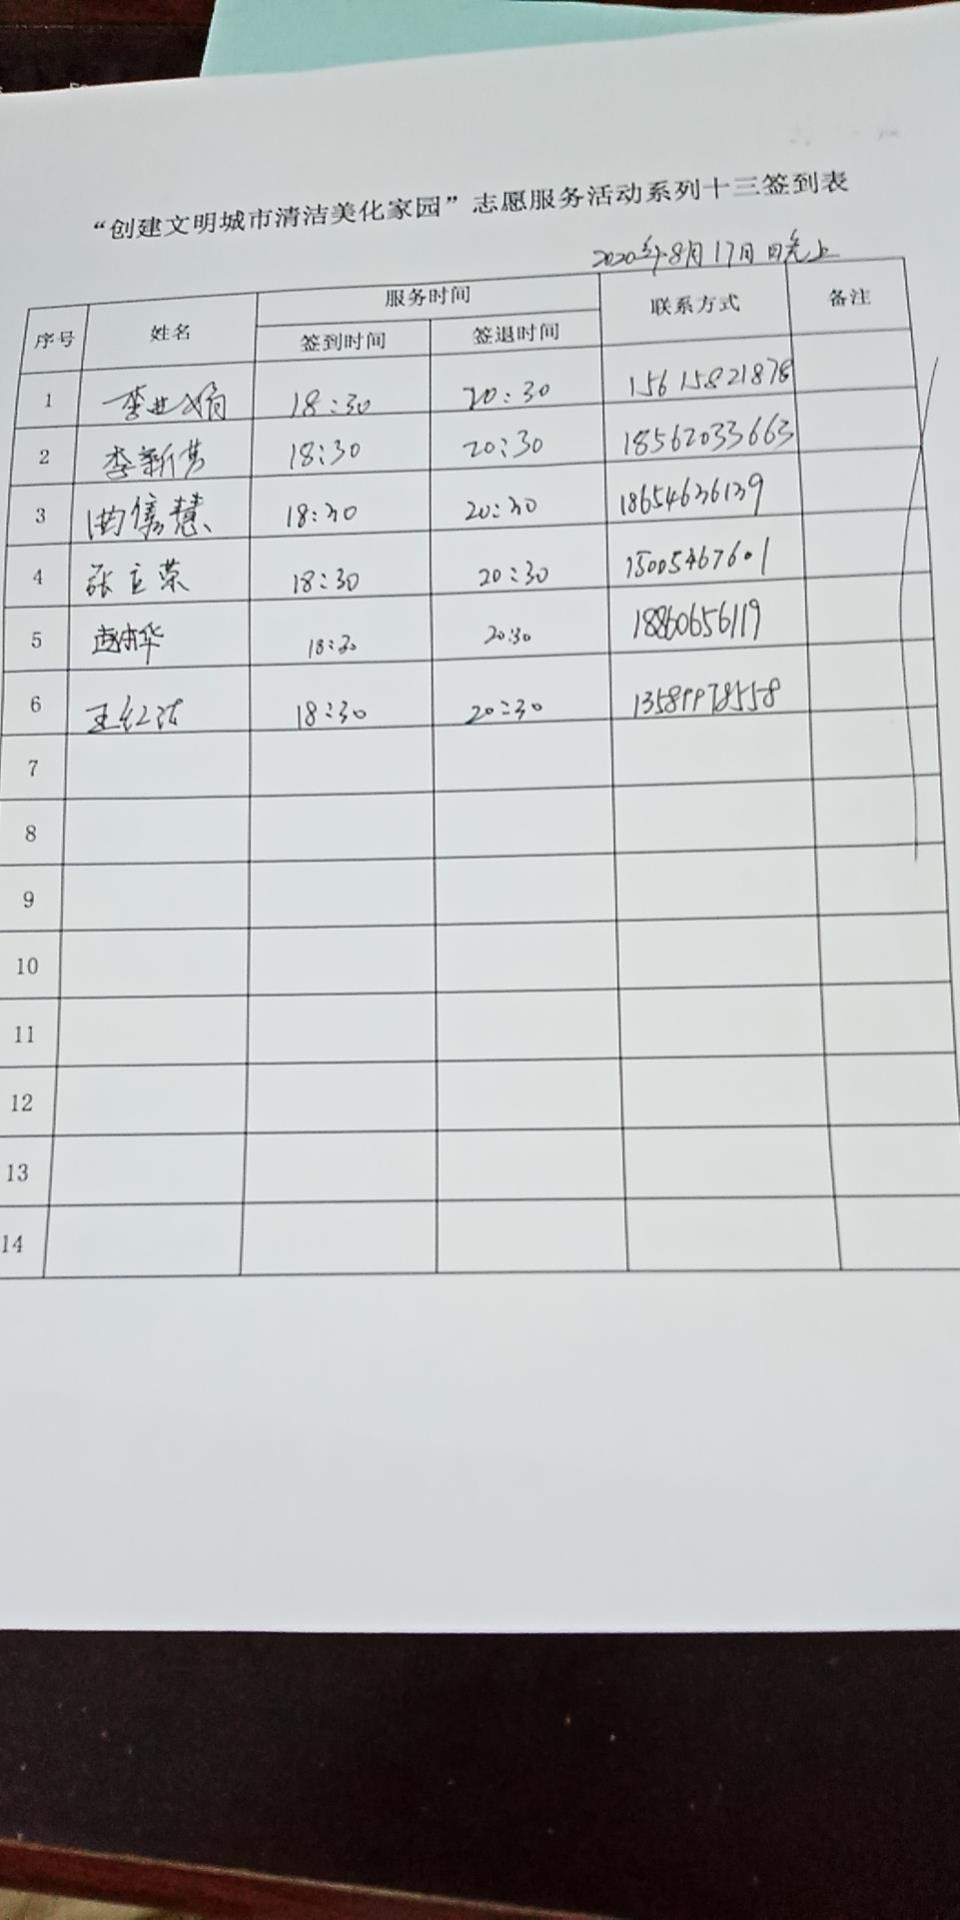 “创建文明城市清洁美化家园”志愿服务活动系列十三签到表
2020年8月17日 晚上
序号 姓名 服务时间 联系方式 备注
签到时间 签退时间
1 李世娟 18:30 20:30 15615821878
2 李新 18:30 20:30 18562033663
3 曲隽慧 18:30 20:30 18654636139
4 张立荣 18:30 20:30 15005467601
5 赵林华 18:30 20:30 18860656119
6 王红 18:30 20:30 13589978558
7
8
9
10
11
12
13
14